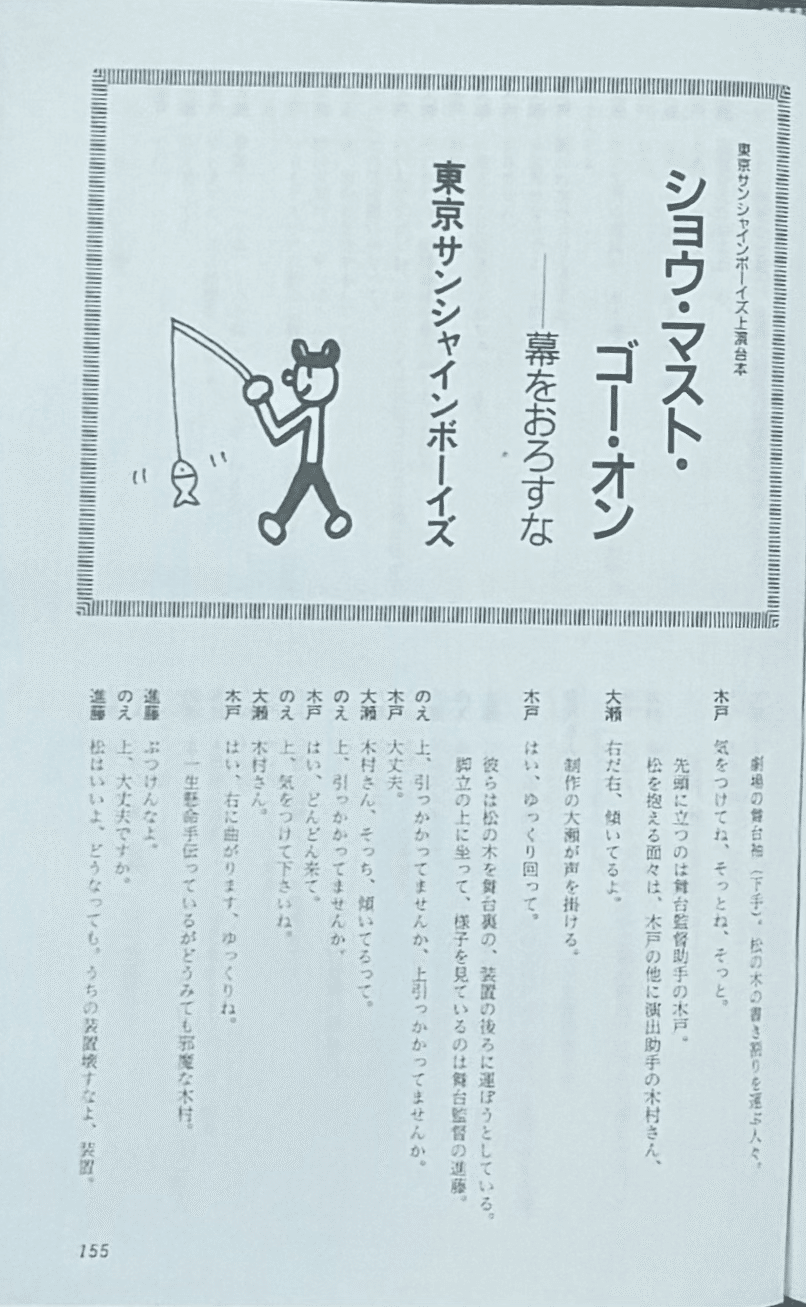 東京サンシャインボーイズ上演台本
ショウ・マスト・
ゴー・オン
――幕をおろすな
東京サンシャインボーイズ
劇場の舞台袖（下手）。松の木の書き割りを運ぶ人々。
木戸 気をつけてね、そっとね、そっと。
先頭に立つのは舞台監督助手の木戸。
松を抱える面々は、木戸の他に演出助手の木村さん、
大瀬 右だ右、傾いてるよ。
制作の大瀬が声を掛ける。
木戸 はい、ゆっくり回って。
彼らは松の木を舞台裏の、装置の後ろに運ぼうとしている。
脚立の上に坐って、様子を見ているのは舞台監督の進藤。
のえ 上、引っかかってませんか、上引っかかってませんか。
木戸 大丈夫。
大瀬 木村さん、そっち、傾いてるって。
のえ 上、引っかかってませんか。
木戸 はい、どんどん来て。
のえ 上、気をつけて下さいね。
大瀬 木村さん。
木戸 はい、右に曲がります、ゆっくりね。
一生懸命手伝っているがどうみても邪魔な木村。
進藤 ぶつけんなよ。
のえ 上、大丈夫ですか。
進藤 松はいいよ、どうなっても。うちの装置壊すなよ、装置。
155